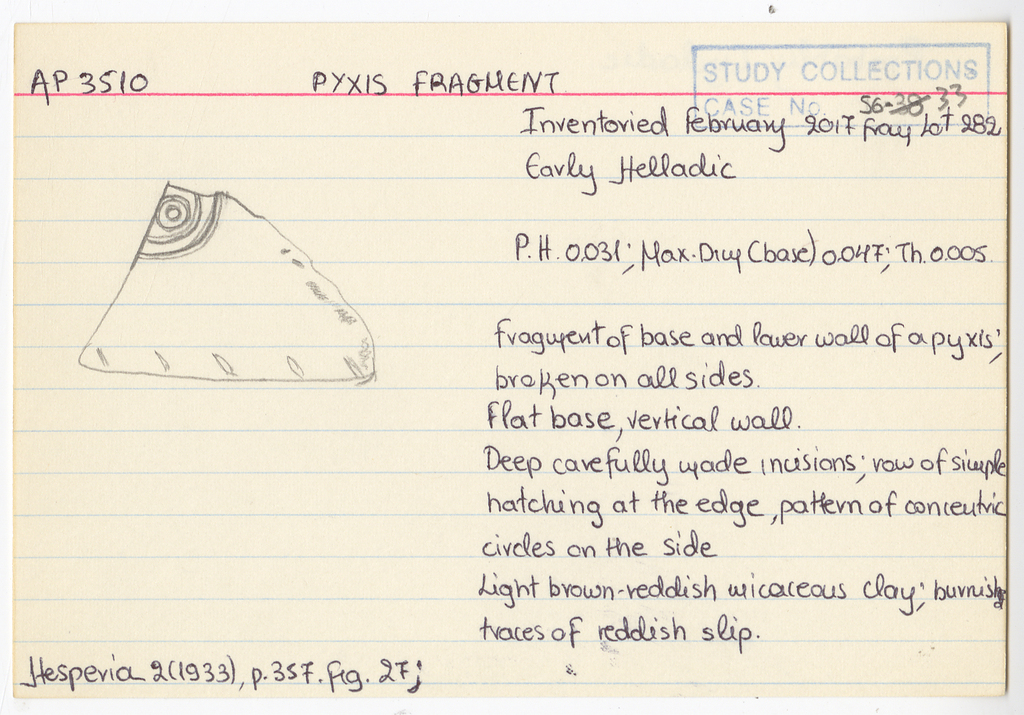 AP 3510 PYXIS FRAGMENT
STUDY COLLECTIONS
CASE No. SG-38 33
Inventoried February 2017 from Lot 282
Early Helladic
P.H. 0.031; Max. Dim (base) 0.047; Th. 0.005.
Fragment of base and lower wall of a pyxis;
broken on all sides.
Flat base, vertical wall.
Deep carefully made incisions; row of simple
hatching at the edge, pattern of concentric
circles on the side
Light brown-reddish micaceous clay; burnished
traces of reddish slip.
Hesperia 2 (1933), p. 357. fig. 27;